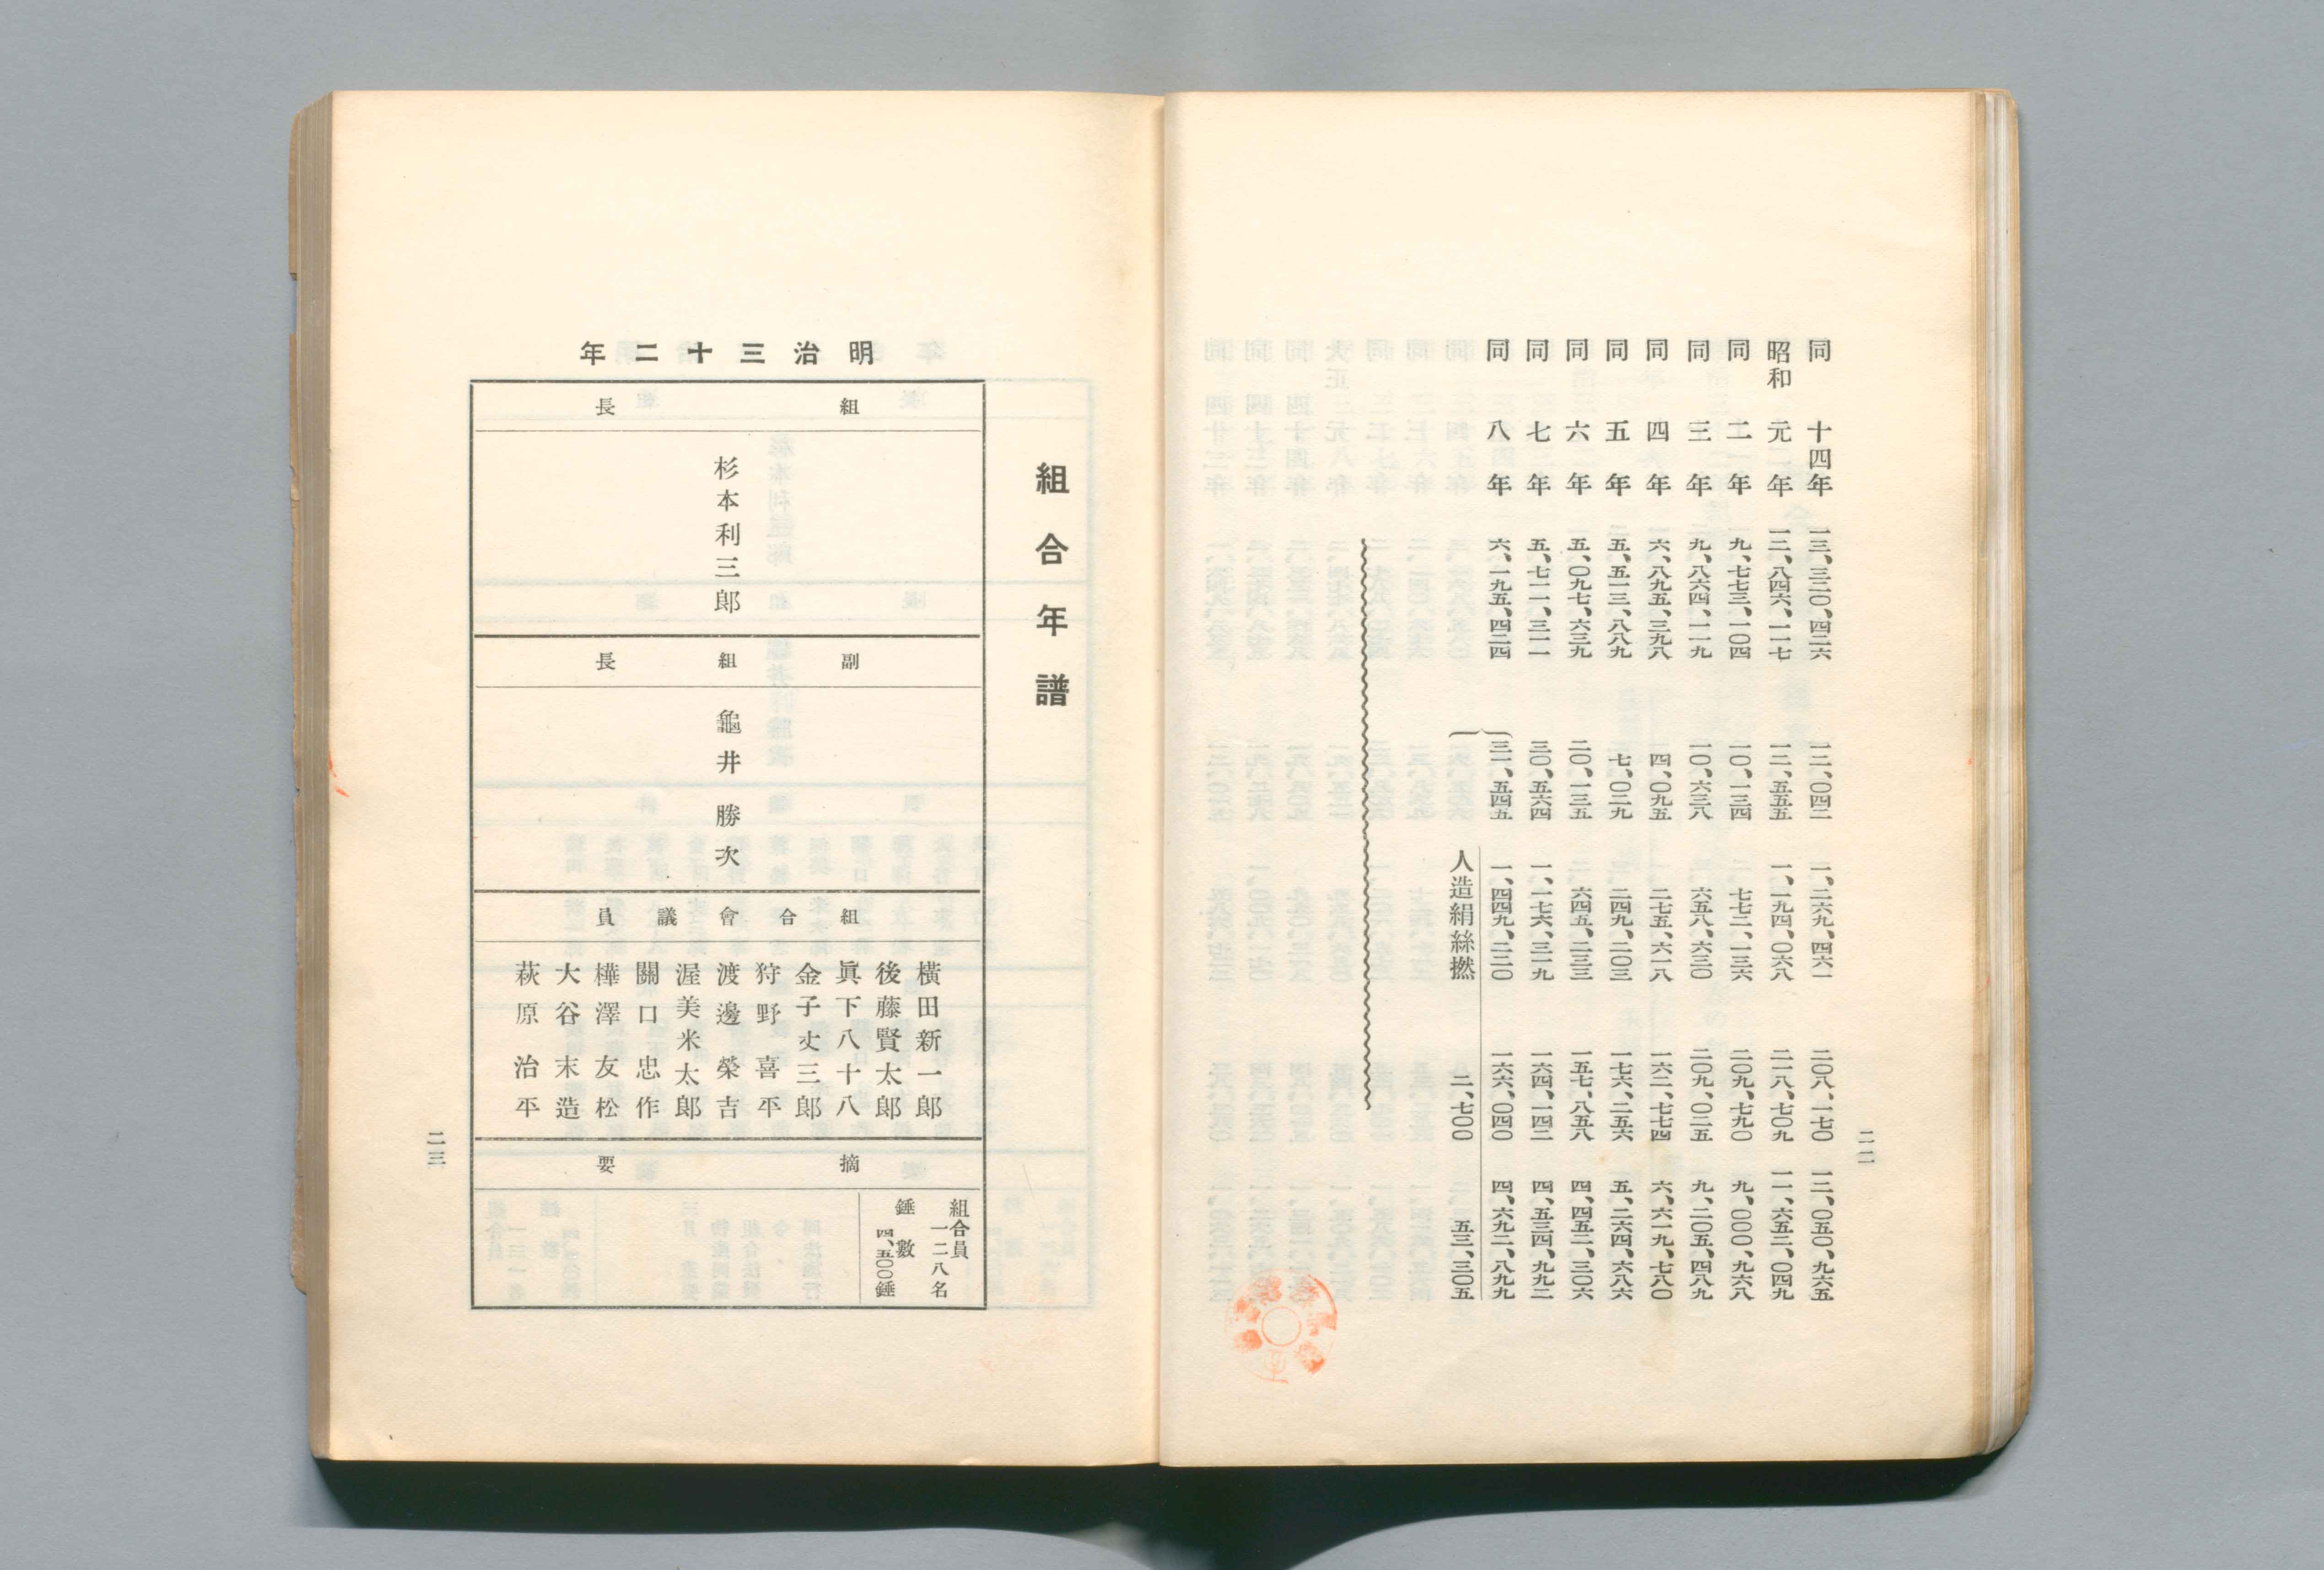 二二
同 十四年 一三、三二〇、四二六 一二、〇四二 一、二六九、四六一 二〇八、一七〇 一二、〇五〇、九六五
昭和元年 一二、八四六、一一七 一二、五五五 一、一九四、〇六八 二一八、七〇九 一一、六五二、〇四九
同 二年 九、七七三、一〇四 一〇、一三四 七七二、一三六 二〇九、七九〇 九、〇〇〇、九六八
同 三年 九、八六四、一一九 一〇、六三八 六五八、六三〇 二〇九、〇二五 九、二〇五、四八九
同 四年 六、八九五、三九八 四、〇九五 二七五、六一八 一六二、七七四 六、六一九、七八〇
同 五年 五、五一三、八八九 七、〇二九 二四九、二〇三 一七六、二五六 五、二六四、六八六
同 六年 五、〇九七、六三九 二〇、一三五 六四五、二三三 一五七、八五八 四、四五二、三〇六
同 七年 五、七一一、三一一 三〇、五六四 一、一七六、三一九 一六四、一四二 四、五三四、九九二
同 八年 六、一九五、四二四 三一、五四五 一、四四九、二二〇 一六六、〇四〇 四、六九二、八九九
人造絹絲撚 二、七〇〇 五三、三〇五
組合年譜
明治三十二年
組長
杉本利三郎
副組長
龜井勝次
組合會議員
横田新一郎
後藤賢太郎
眞下八十八
金子丈三郎
狩野喜平
渡邊榮吉
渥美米太郎
關口忠作
樺澤友松
大谷末造
萩原治平
摘要
組合員
一二八名
錘數
四、五〇〇錘
二三